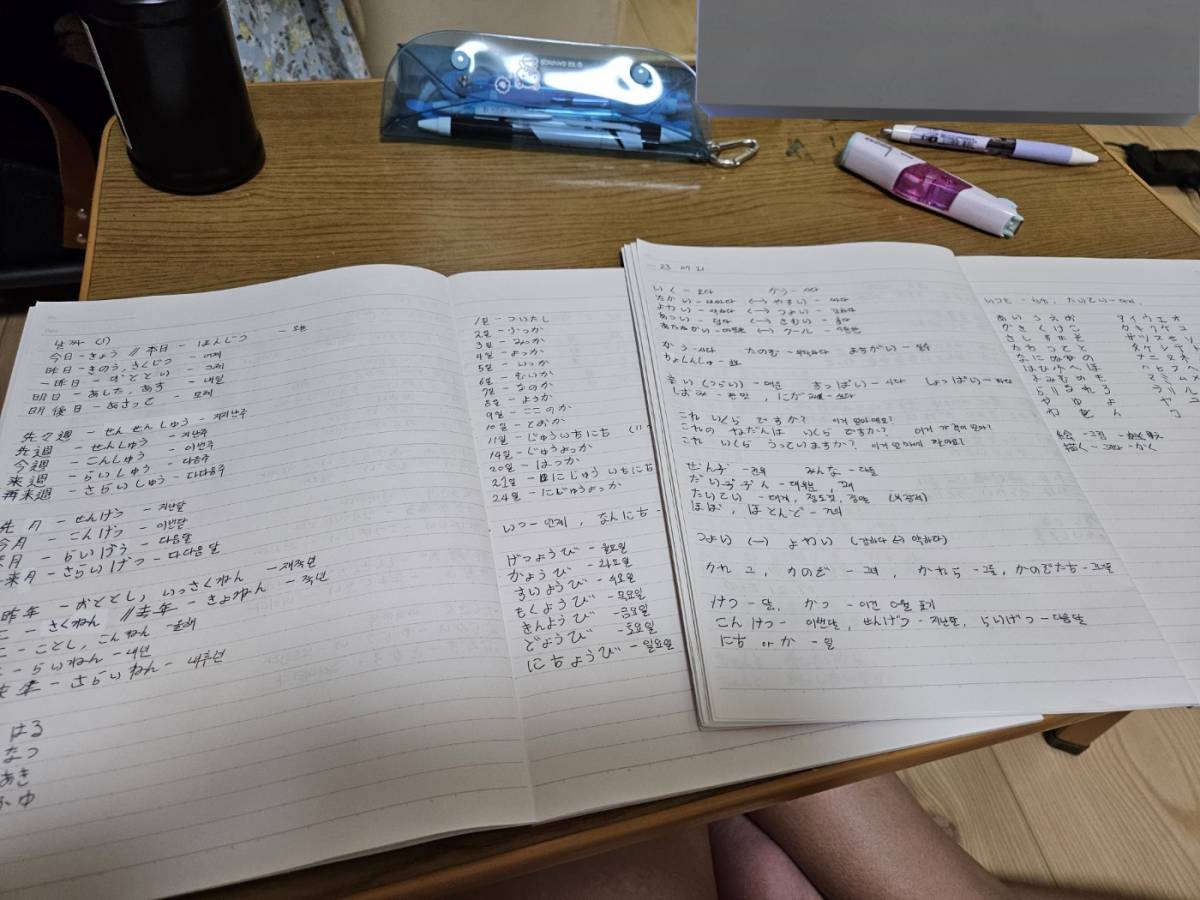 날짜 (1)
今日 - きょう // 本日 - ほんじつ - 오늘
昨日 - きのう, さくじつ - 어제
一昨日 - おととい - 그제
明日 - あした, あす - 내일
明後日 - あさって - 모레
先々週 - せんせんしゅう - 저저난주
先週 - せんしゅう - 지난주
今週 - こんしゅう - 이번주
来週 - らいしゅう - 다음주
再来週 - さらいしゅう - 다다음주
先月 - せんげつ - 지난달
今月 - こんげつ - 이번달
来月 - らいげつ - 다음달
来月 - さらいげつ - 다다음달
昨年 - おととし, いっさくねん - 재작년
- さくねん // 去年 - きょねん - 작년
- ことし, こんねん - 올해
- らいねん - 내년
来年 - さらいねん - 내후년
はる
なつ
あき
ふゆ
1일 - ついたし
2일 - ふつか
3일 - みっか
4일 - よっか
5일 - いつか
6일 - むいか
7일 - なのか
8일 - ようか
9일 - ここのか
10일 - とおか
11일 - じゅういちにち
14일 - じゅうよっか
20일 - はつか
21일 - にじゅういちにち
24일 - にじゅうよっか
いつ - 언제, なんにち -
げつようび - 월요일
かようび - 화요일
すいようび - 수요일
もくようび - 목요일
きんようび - 금요일
どようび - 토요일
にちようび - 일요일
23 07 21
いく - かう - 사다
たかい - 비싸다 <-> やすい - 싸다
よわい - 약하다 <-> つよい - 강하다
あつい - 덥다 <-> さむい - 춥다
あたたかい - 따뜻한 <-> クール - 시원한
かう - 사다 たのむ - 부탁하다 まちがい - 실수
からい (つらい) - 매운 すっぱい - 시다 しょっぱい - 짜다
これ いくら ですか? 이거 얼마예요?
これの ねだんは いくら ですか? 이거 가격이 얼마?
これ いくら うっていますか? 이거 얼마에 팔아요?
ぜんぶ - 전부 みんな - 다들
だいぶぶん - 대부분
たいてい - 대개, 정도껏,
ほぼ, ほとんど - 거의
つよい <-> よわい (강하다 <-> 약하다)
かれ 그, かのじょ - 그녀, かれら - 그들, かのじょたち - 그녀들
げつ - 달, がつ - 이건 0월 표기
こんげつ - 이번달, せんげつ - 지난달, らいげつ - 다음달
にち or か - 일
いつも - , たいてい -
あいうえお アイウエオ
かきくけこ カキクケコ
さしすせそ サシスセソ
たちつてと タチツテ
なにぬねの ナニヌネ
はひふへほ ハヒフヘ
まみむめも マミムメ
らりるれろ ラリル
や ゆ よ ヤ ユ
わ を ん ワ
絵 - 그림 - かく
描く - 그리다 - かく